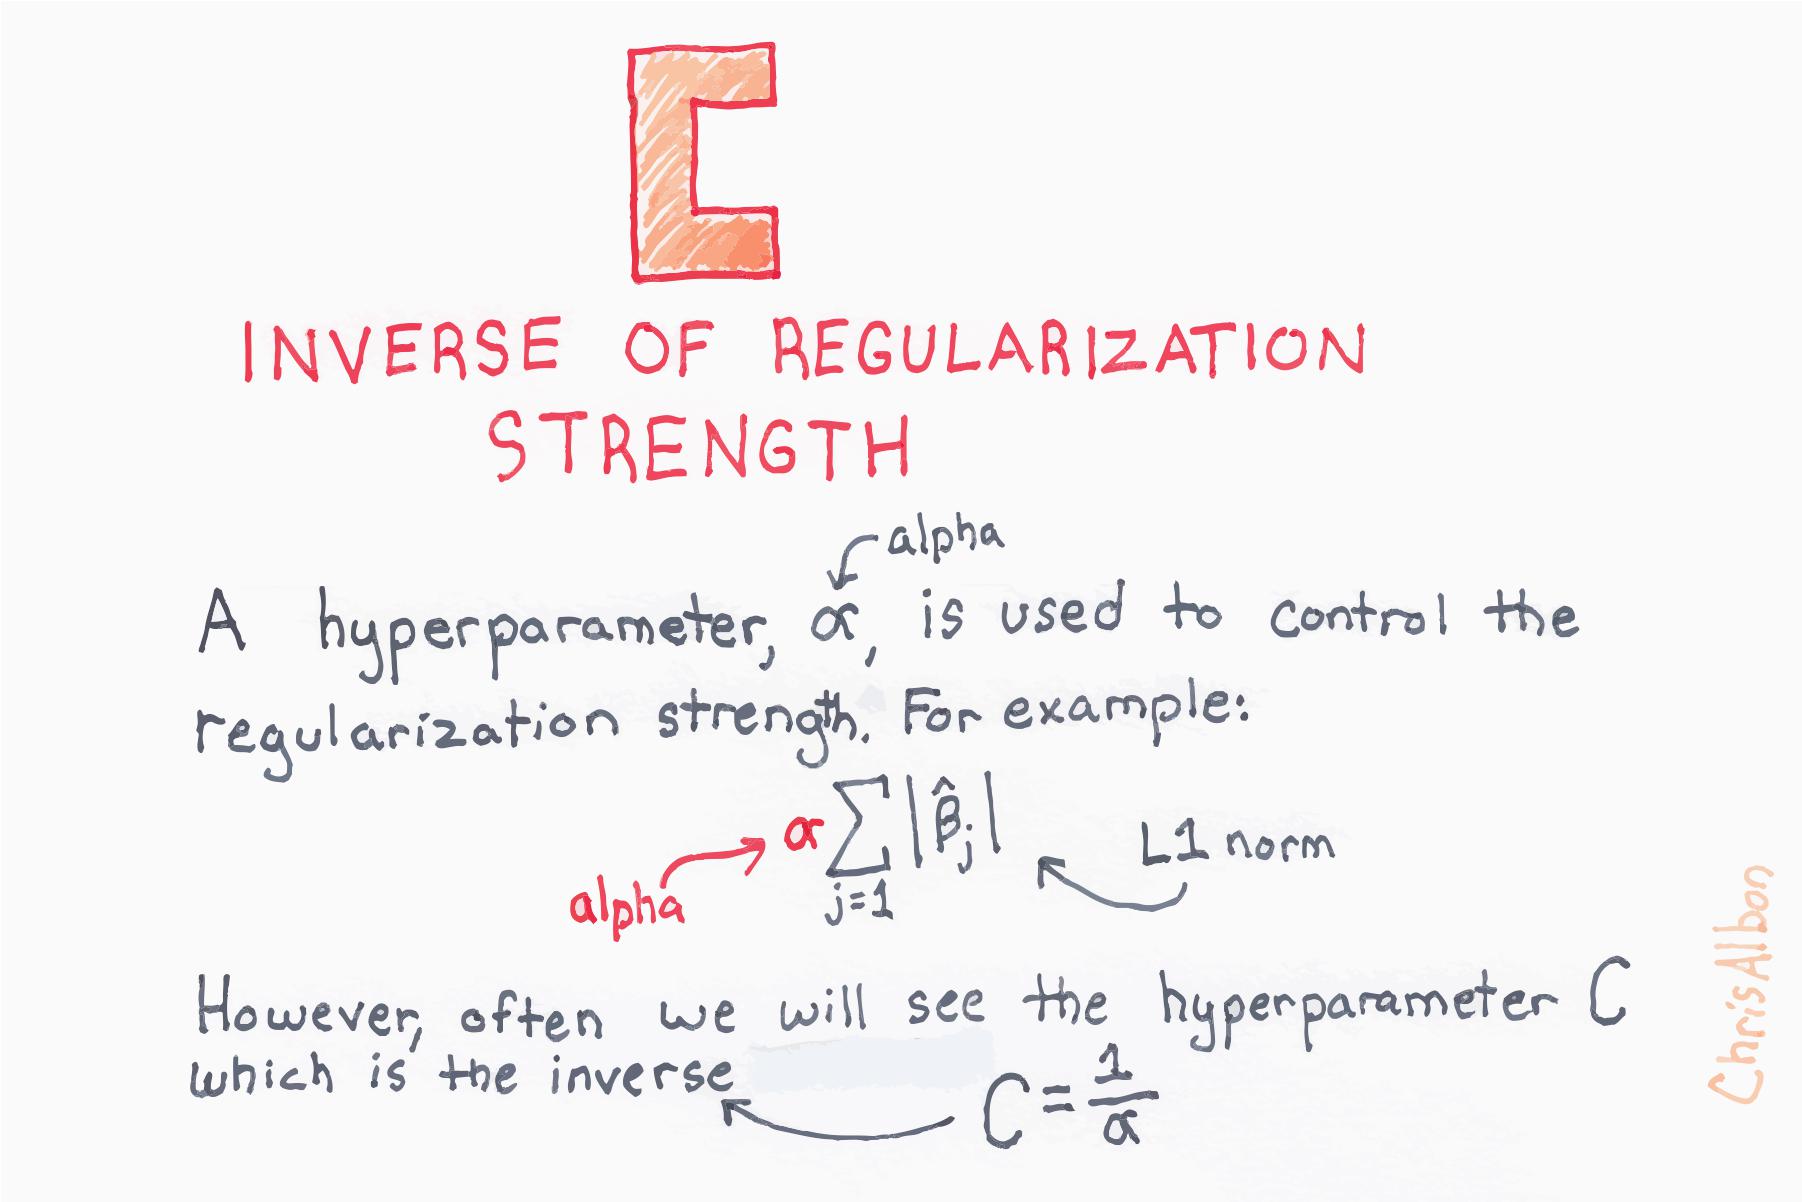 C
INVERSE OF REGULARIZATION
STRENGTH
alpha
A hyperparameter, α, is used to control the
regularization strength. For example:
α∑|β̂j|
j=1
L1 norm
alpha
However, often we will see the hyperparameter C
which is the inverse
C = 1/α
ChrisAlbon